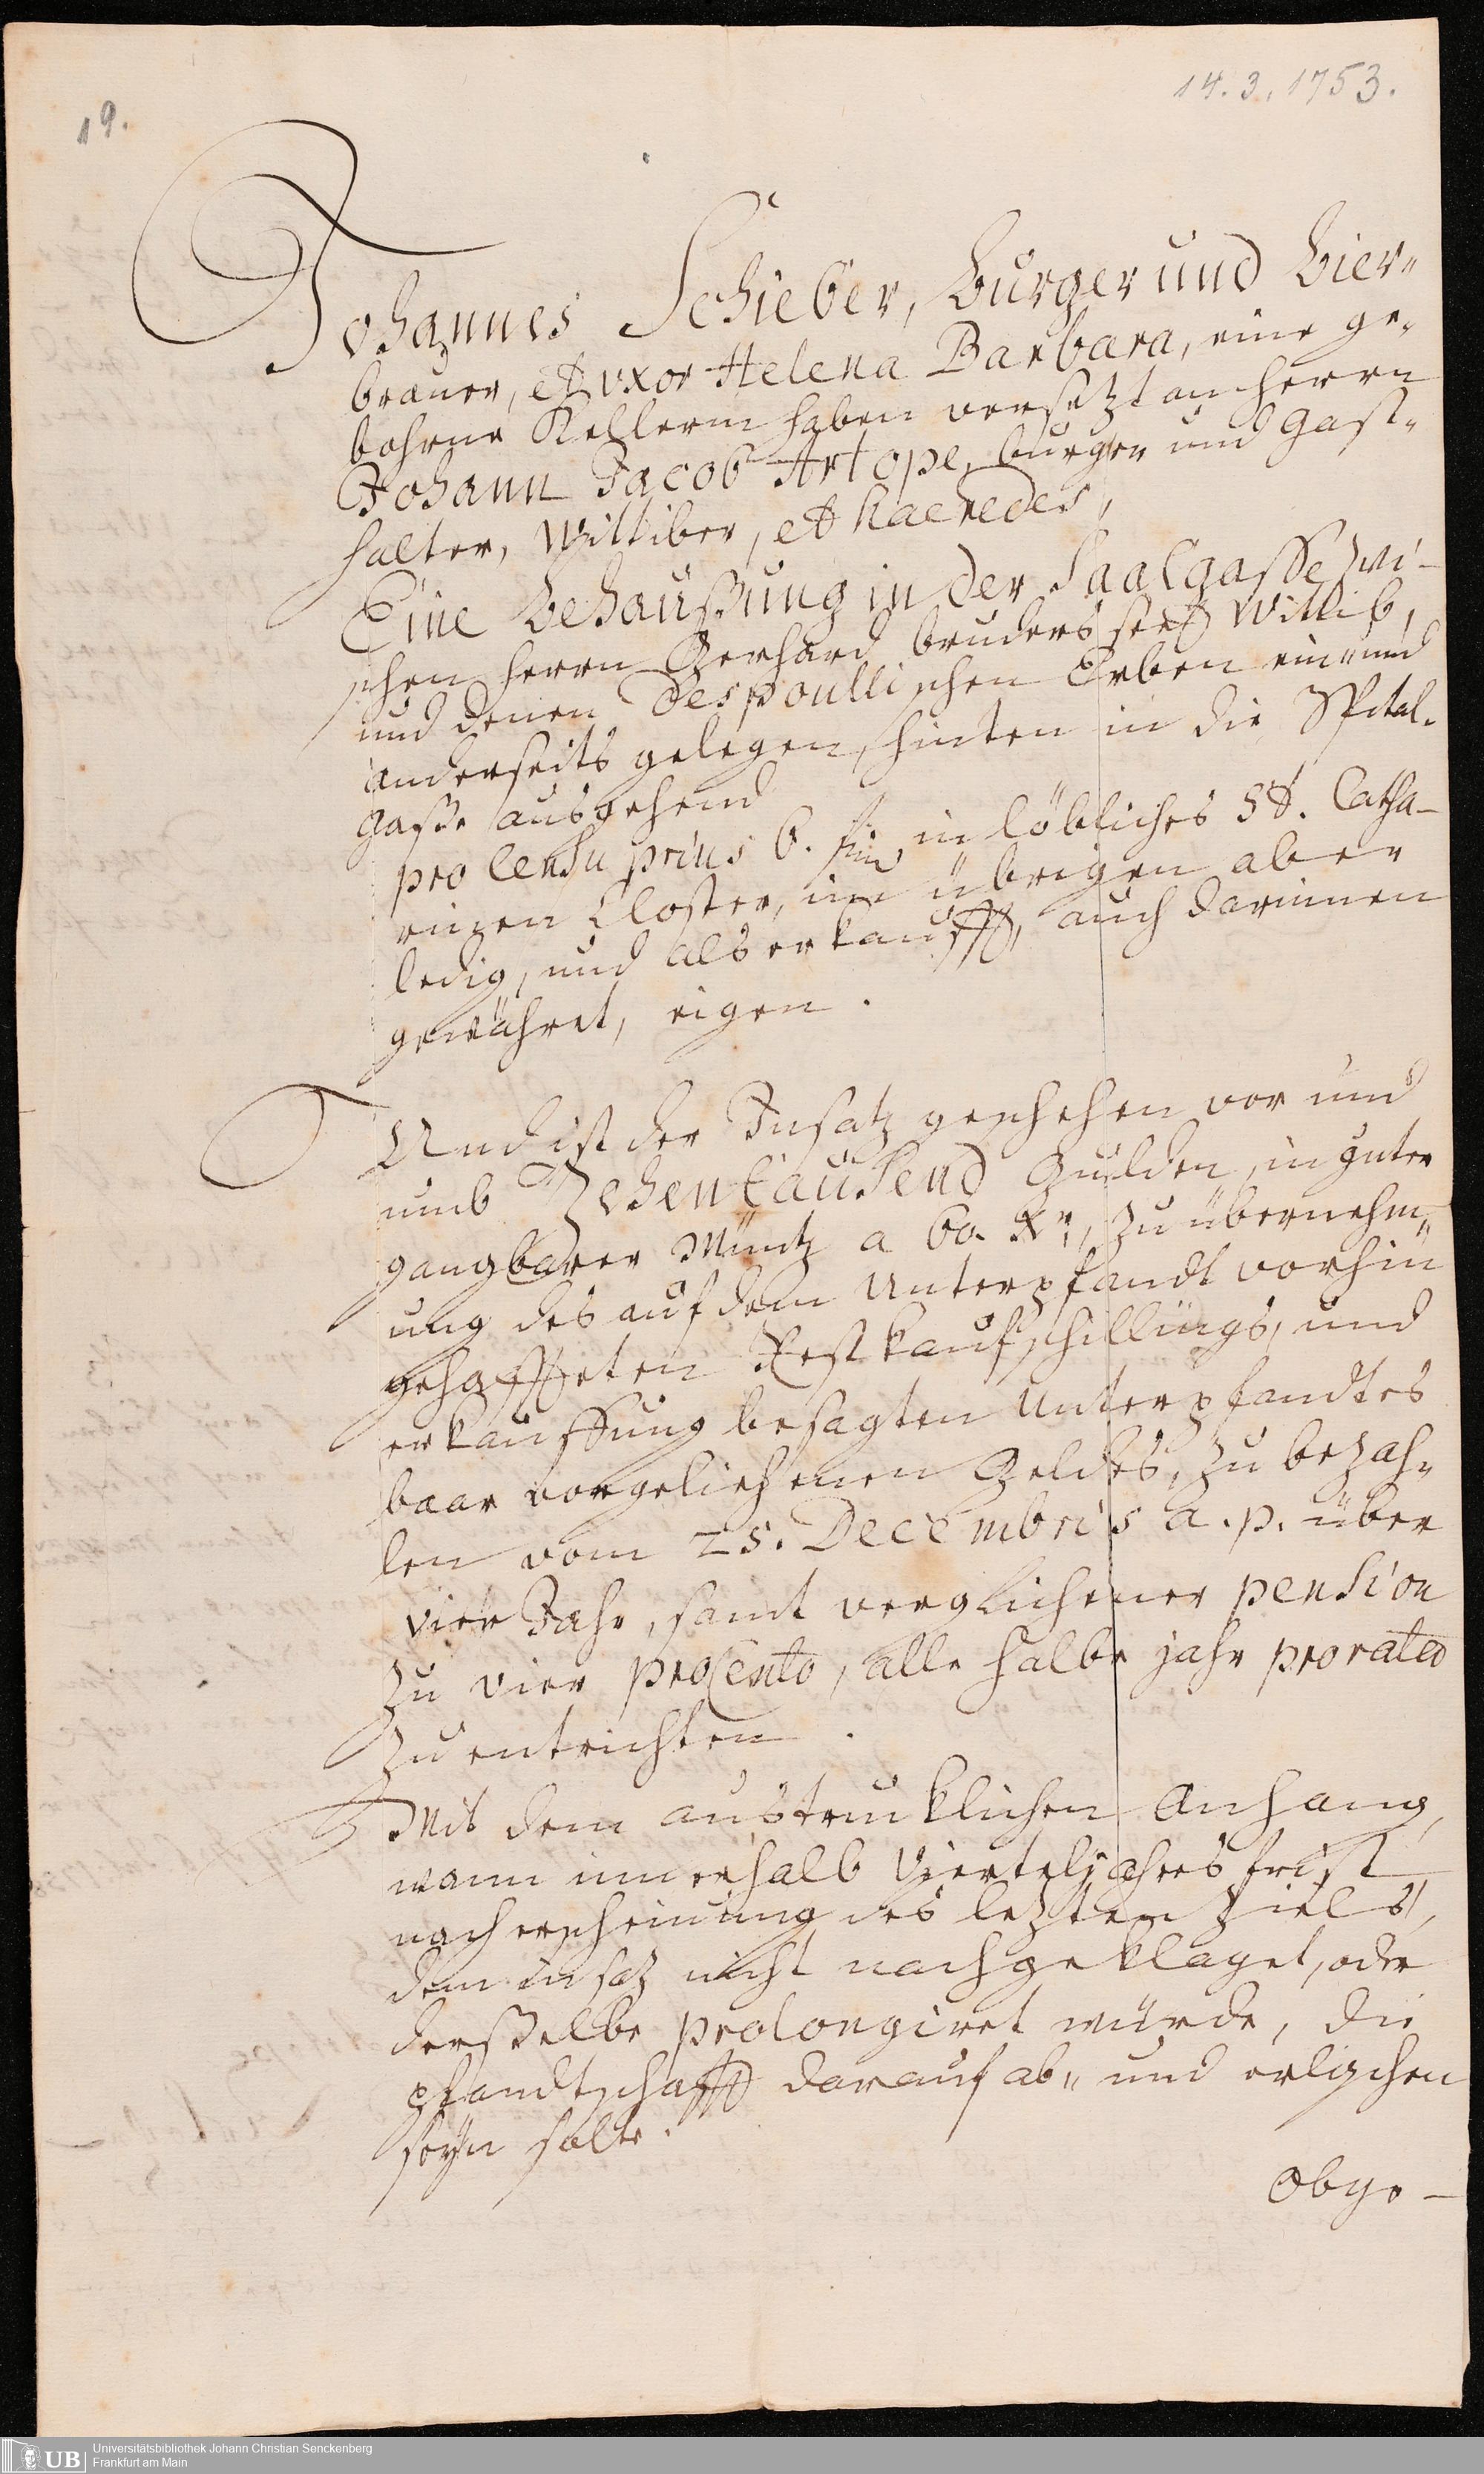 19.
14. 3. 1753.
Johannes Schieber, Burger und Bier„
brauer, et uxor Helena Barbara, eine ge„
bohrne Kellerin haben versezt an Herrn
Johann Jacob Artope, burger und Gast„
halter, Wittiber, et haeredes,
Eine Behaußung in der Saalgasse zwi-
schen Herrn Gerhard Bruders seel. Wittib,
und denen Despoullischen Erben ein„ und
anderseits gelegen, hinten in die Spital„
gaße ausgehend
pro censu prius 6. ß in löbliches St. Catha-
rinen Closter, im übrigen aber
ledig, und als erkaufft, auch darinnen
gewähret, eigen.
Und ist der Insatz geschehen vor und
umb Zehentausend Gulden, in guter
gangbarer Müntz a 60. Xr., zu übernehm„
ung des auf dem Unterpfandt vorhin
gehaffteten Restkaufschillings, und
erkauffung besagten Unterpfandtes
baar vorgeliehenen Geldes, zu bezah„
len vom 25. Decembris a. p. über
vier Jahr, samt verglichener pension
zu vier procento, alle halbe jahr prorato
zu entrichten.
Mit dem austrucklichen Anhang,
wann innerhalb Vierteljahrs frist
nach erscheinung des lezten Ziels,
dem insaz nicht nachgeklaget, oder
derßelbe prolongiret würde, die
pfandtschafft darauf ab„ und erlischen
seyn solte.
Obge-
UB
Universitätsbibliothek Johann Christian Senckenberg
Frankfurt am Main